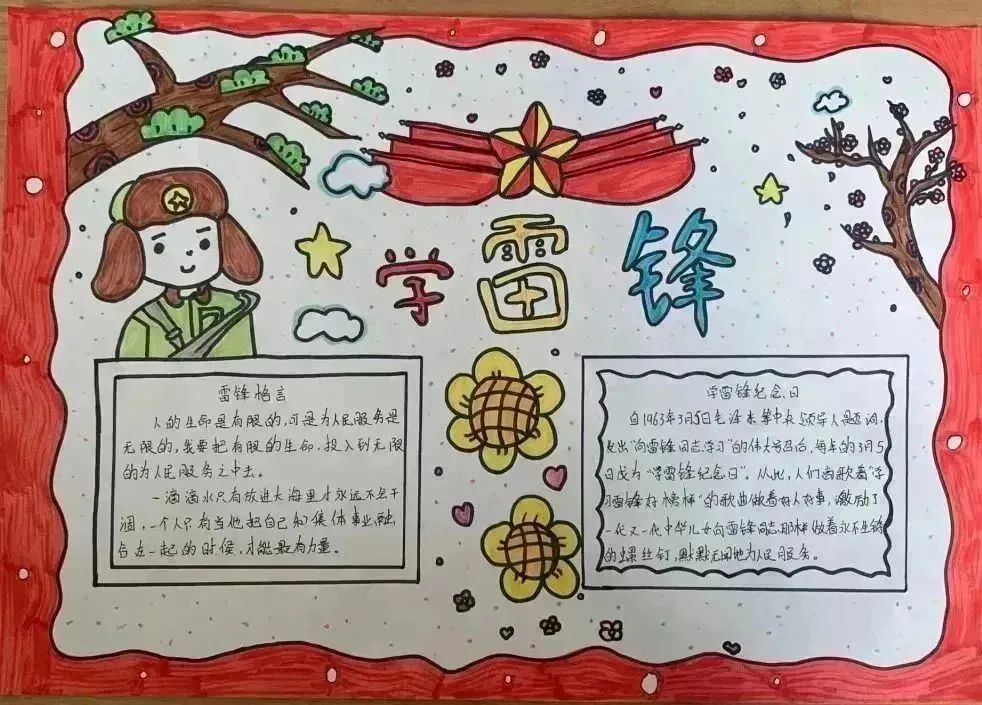 学雷锋
雷锋格言
人的生命是有限的,可是为人民服务是
无限的,我要把有限的生命,投入到无限
的为人民服务之中去。
一滴滴水只有放进大海里才永远不会干
涸,一个人只有当他把自己和集体事业融
合在一起的时候,才能最有力量。
学雷锋纪念日
自1963年3月5日毛泽东等中央领导人题词,
发出“向雷锋同志学习”的伟大号召后,每年的3月5
日成为“学雷锋纪念日”。从此,人们高歌着“学
习雷锋好榜样”的歌曲做着好人好事,激励了
一代又一代中华儿女向雷锋同志那样做着永不生锈
的螺丝钉,默默无闻地为人民服务。